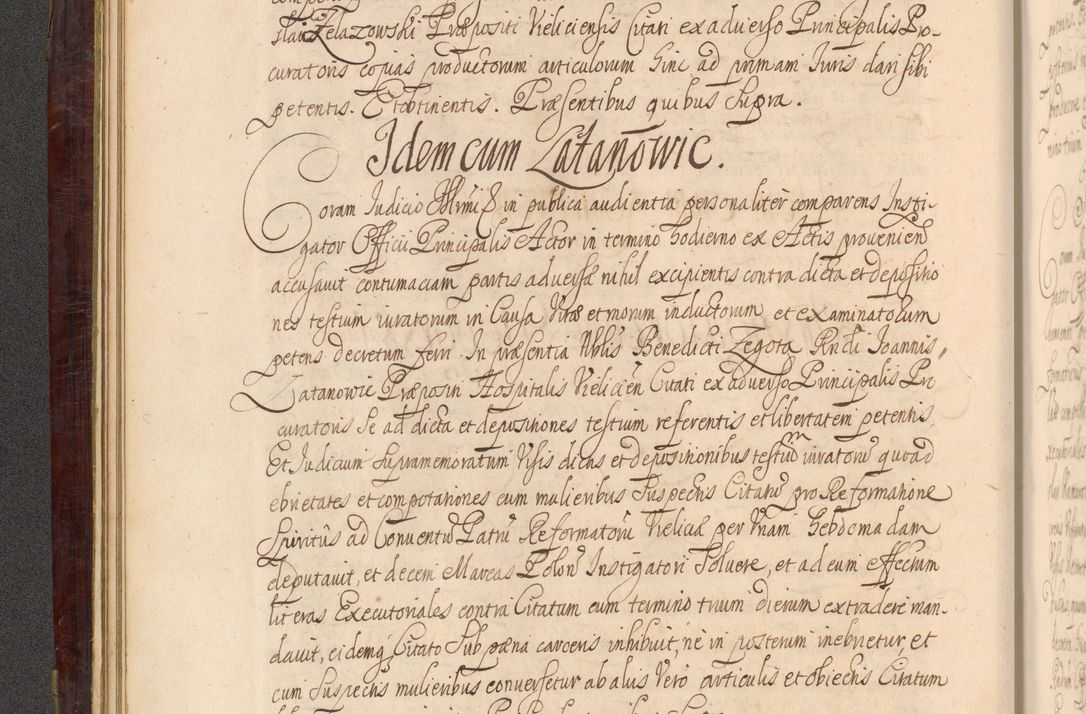 slai Zelazowski Præpositi Vieliciensis Citati ex adverso Principalis Pro-
curatoris copias productorum articulorum hinc ad primam Iuris dari sibi
petentis. Et obtinentis. Præsentibus quibus supra.
Idem cum Łatanowic.
Coram Iudicio in publica audientia personaliter comparens Insti-
gator Officii Principalis Actor in termino hodierno ex Actis provenien
accusavit contumaciam partis adversæ nihil excipientis contra dicta et depositio
nes testium iuratorum in Causa Vitæ et morum inductorum et examinatorum
petens decretum ferri. In præsentia Nblis Benedicti Zegota Rndi Ioannis
Łatanowic Præpositi Hospitalis Vielicien Citati ex adverso Principalis Pro
curatoris se ad dicta et depositiones testium referentis et libertatem petentis.
Et Iudicium supramemoratum Visis dictis et depositionibus testiũm iuratorũ quoad
ebrietates et compotationes cum mulieribus suspectis Citatũ pro Reformatione
Spiritûs ad Conventũ Patrũ Reformatorũ Vieliciæ per Vnam hebdomadam
deputavit, et decem Marcas Polon Instigatori solvere, et ad eum effectum
literas Executoriales contra Citatum cum termino trium dierum extradere man-
davit, eidemq Citato sub pæna carceris inhibuit, ne in posterum inebrietur, et
cum suspectis mulieribus conversetur ab aliis Vero articulis et obiectis Citatum